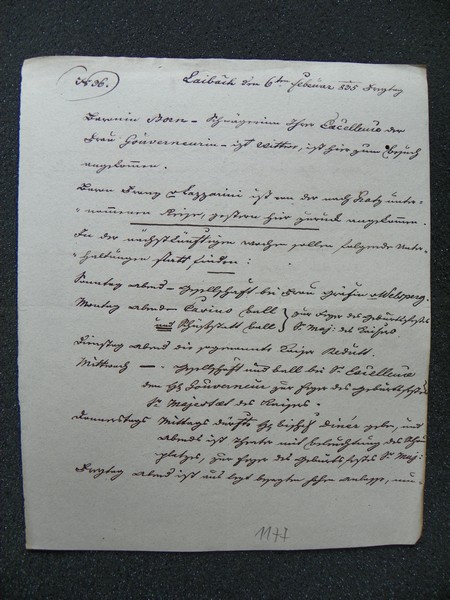 No 36.
Laibach den 6ten Februar 835 Freytag
Baronin Born – Schwägerin Ihrer Excellenz der
Frau Gouverneurin – ist Wittwe, ist hier zum Besuch
angekommen.
Baron Franz v Lazzarini ist von der nach Graz unter-
nommenen Reise, gestern hier zurück angekommen.
In der nächstkünftigen Wochen sollen folgende Unter-
haltungen statt finden:
Sonntag abend – Gesellschaft bei Frau Gräfin v Welsperg.
Montag abends Casino ball
und Schießstatt ball } zur Feyer des Geburtsfestes
Sr Maj: des Kaisers
Dienstag abend die sogenannte Kaiser Redutt.
Mittwoch – . Gesellschaft und ball bei Sr Excellenz
dem H Gouverneur zur Feyer des Geburtsfestes
Sr Majestaet des Kaisers.
Donnerstags Mittags dürfte H Bischof dinèr geben, und
abends ist Theater mit beleuchtung des Schau-
platzes, zur Feyer des Geburtsfestes Sr Maj:
Freytag abend ist aus letzt besagten hohen Anlasse, ein-
1177